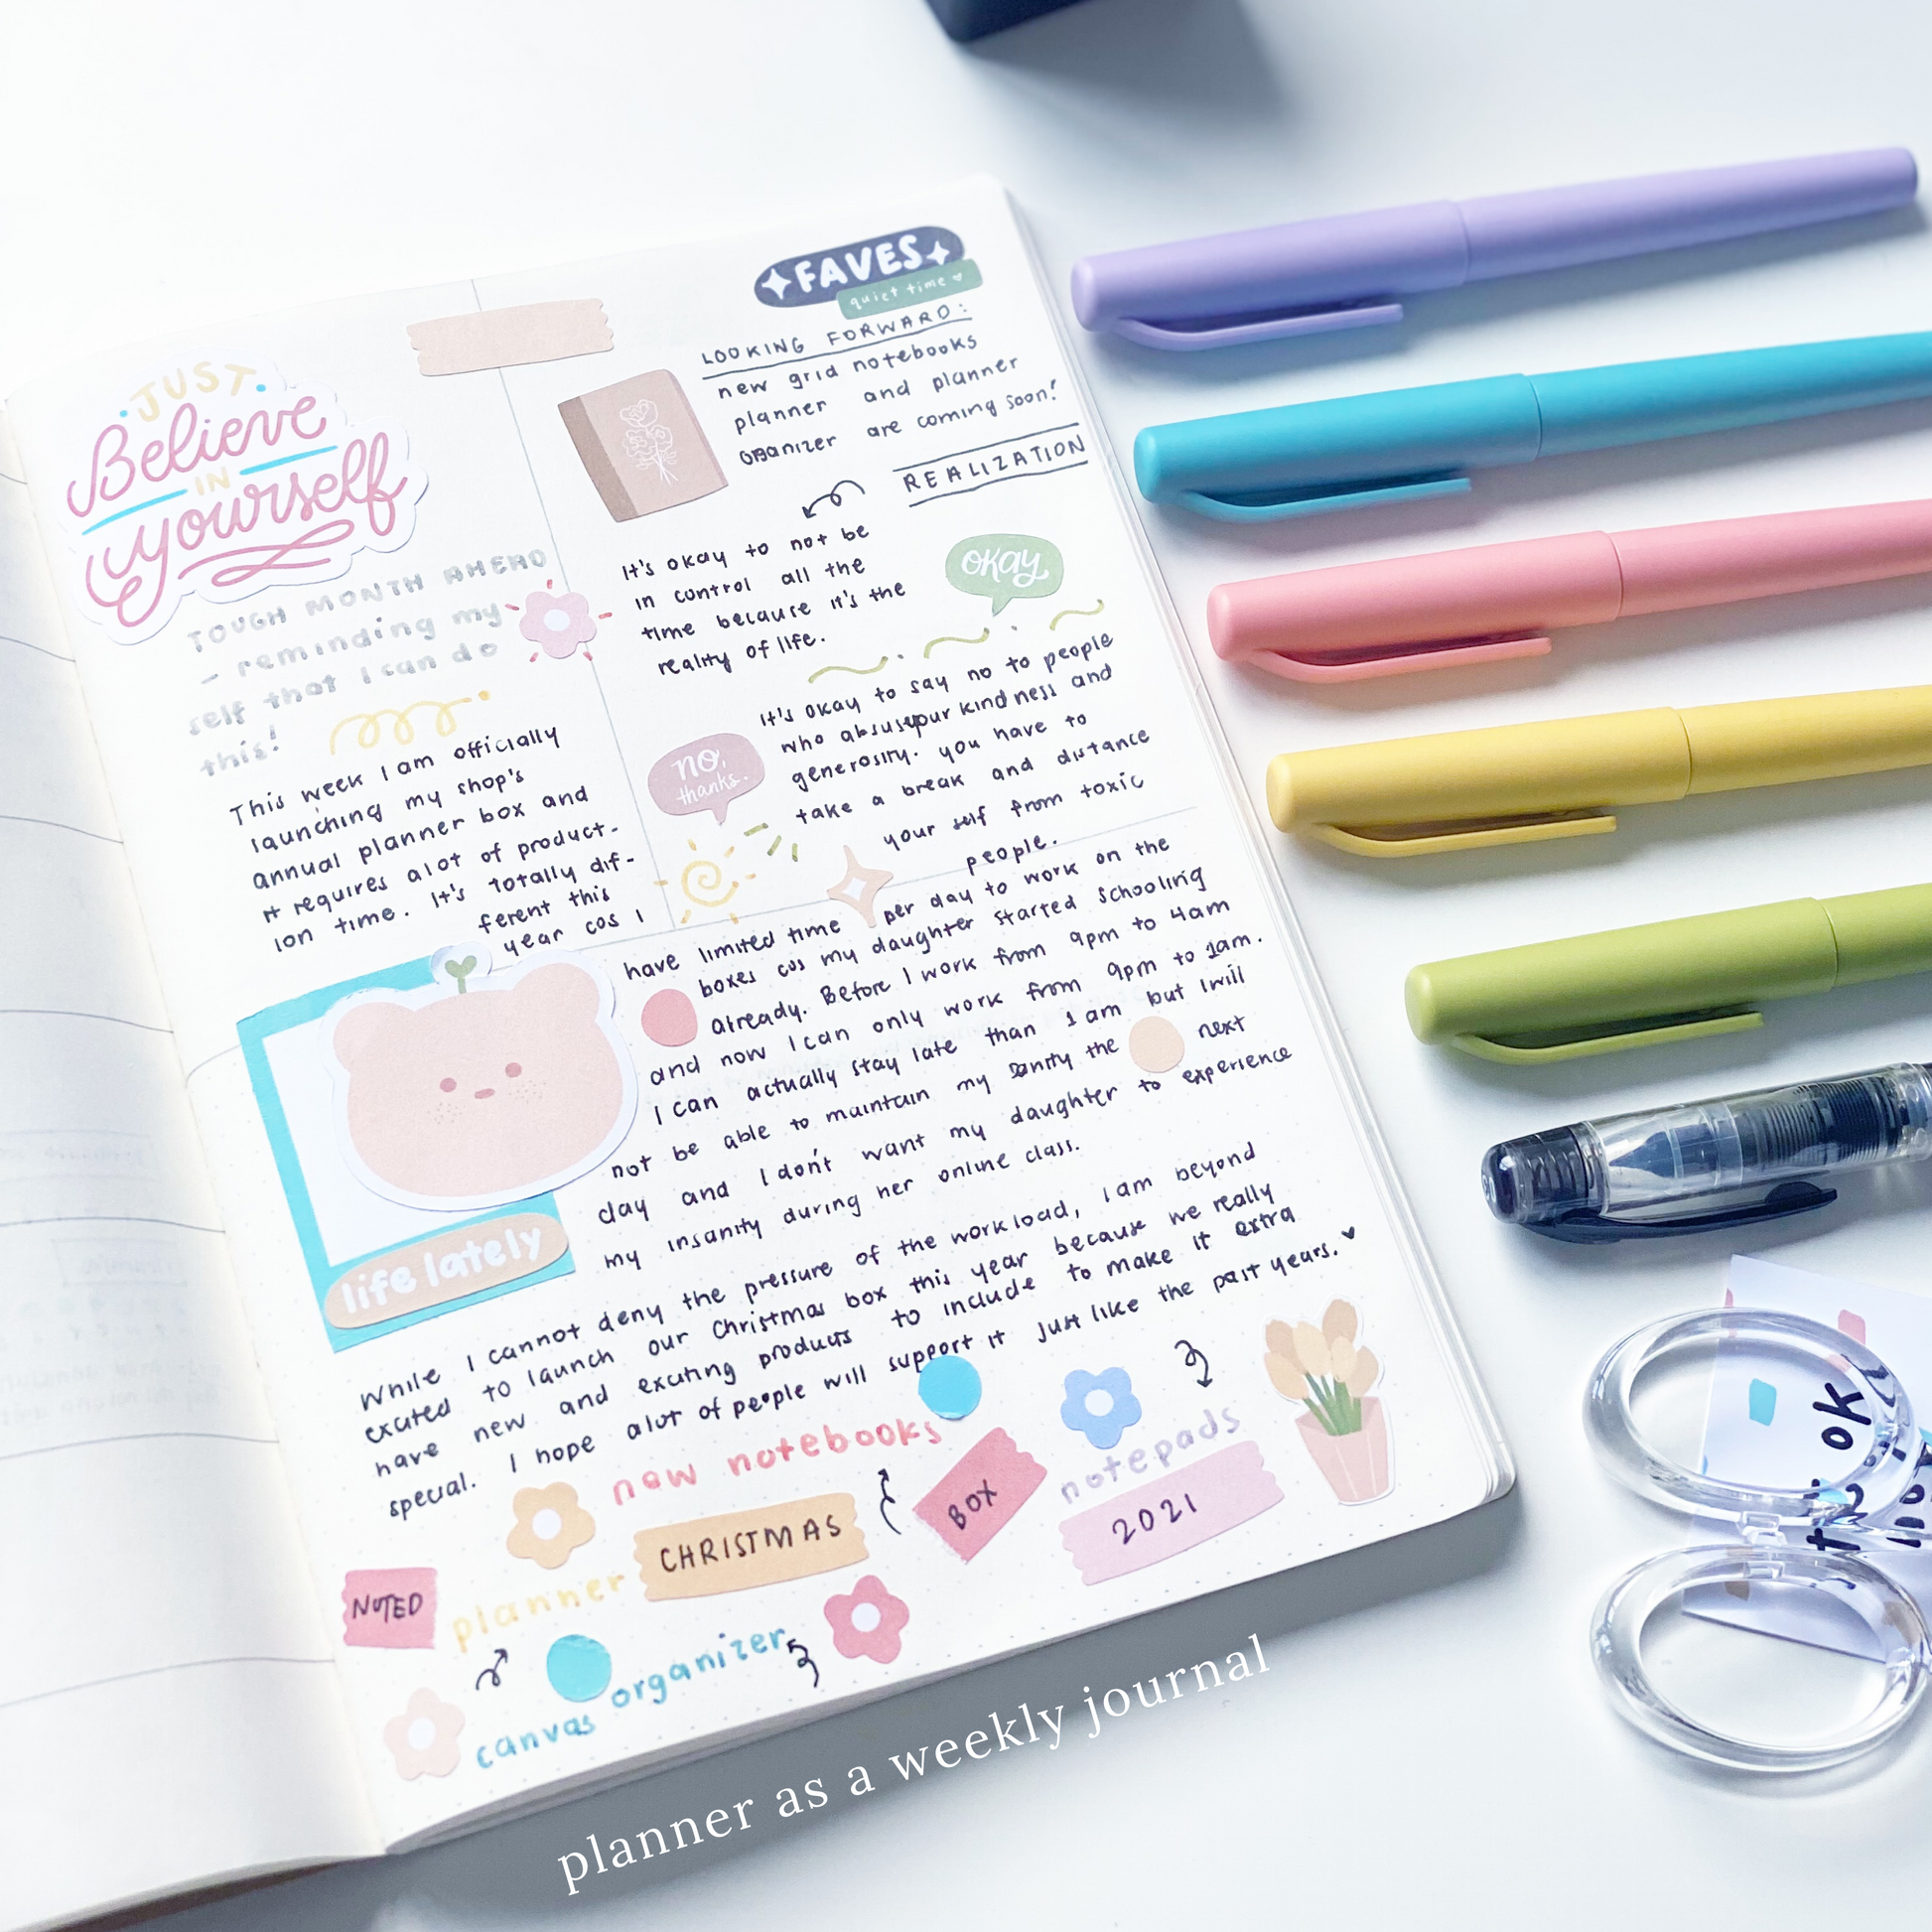 JUST
Believe
IN
yourself
TOUGH MONTH AHEAD
- reminding my
self that I can do
this!
This week I am officially
launching my shop's
annual planner box and
it requires alot of product-
ion time. It's totally dif-
ferent this
year cos I
FAVES
quiet time
LOOKING FORWARD:
new grid notebooks
planner and planner
organizer are coming soon!
REALIZATION
It's okay to not be
in control all the
time because it's the
reality of life.
okay
It's okay to say no to people
who abuse your kindness and
generosity. you have to
take a break and distance
your self from toxic
people.
no,
thanks.
have limited time per day to work on the
boxes cos my daughter started schooling
already. Before I work from 9pm to 4am
and now I can only work from 9pm to 1am.
I can actually stay late than 1am but I will
not be able to maintain my sanity the next
day and I don't want my daughter to experience
my insanity during her online class.
life lately
While I cannot deny the pressure of the workload, I am beyond
excited to launch our Christmas box this year because we really
have new and exciting products to include to make it extra
special. I hope alot of people will support it just like the past years.
new notebooks
notepads
CHRISTMAS
BOX
2021
NOTED
planner
canvas organizer
planner as a weekly journal
ok